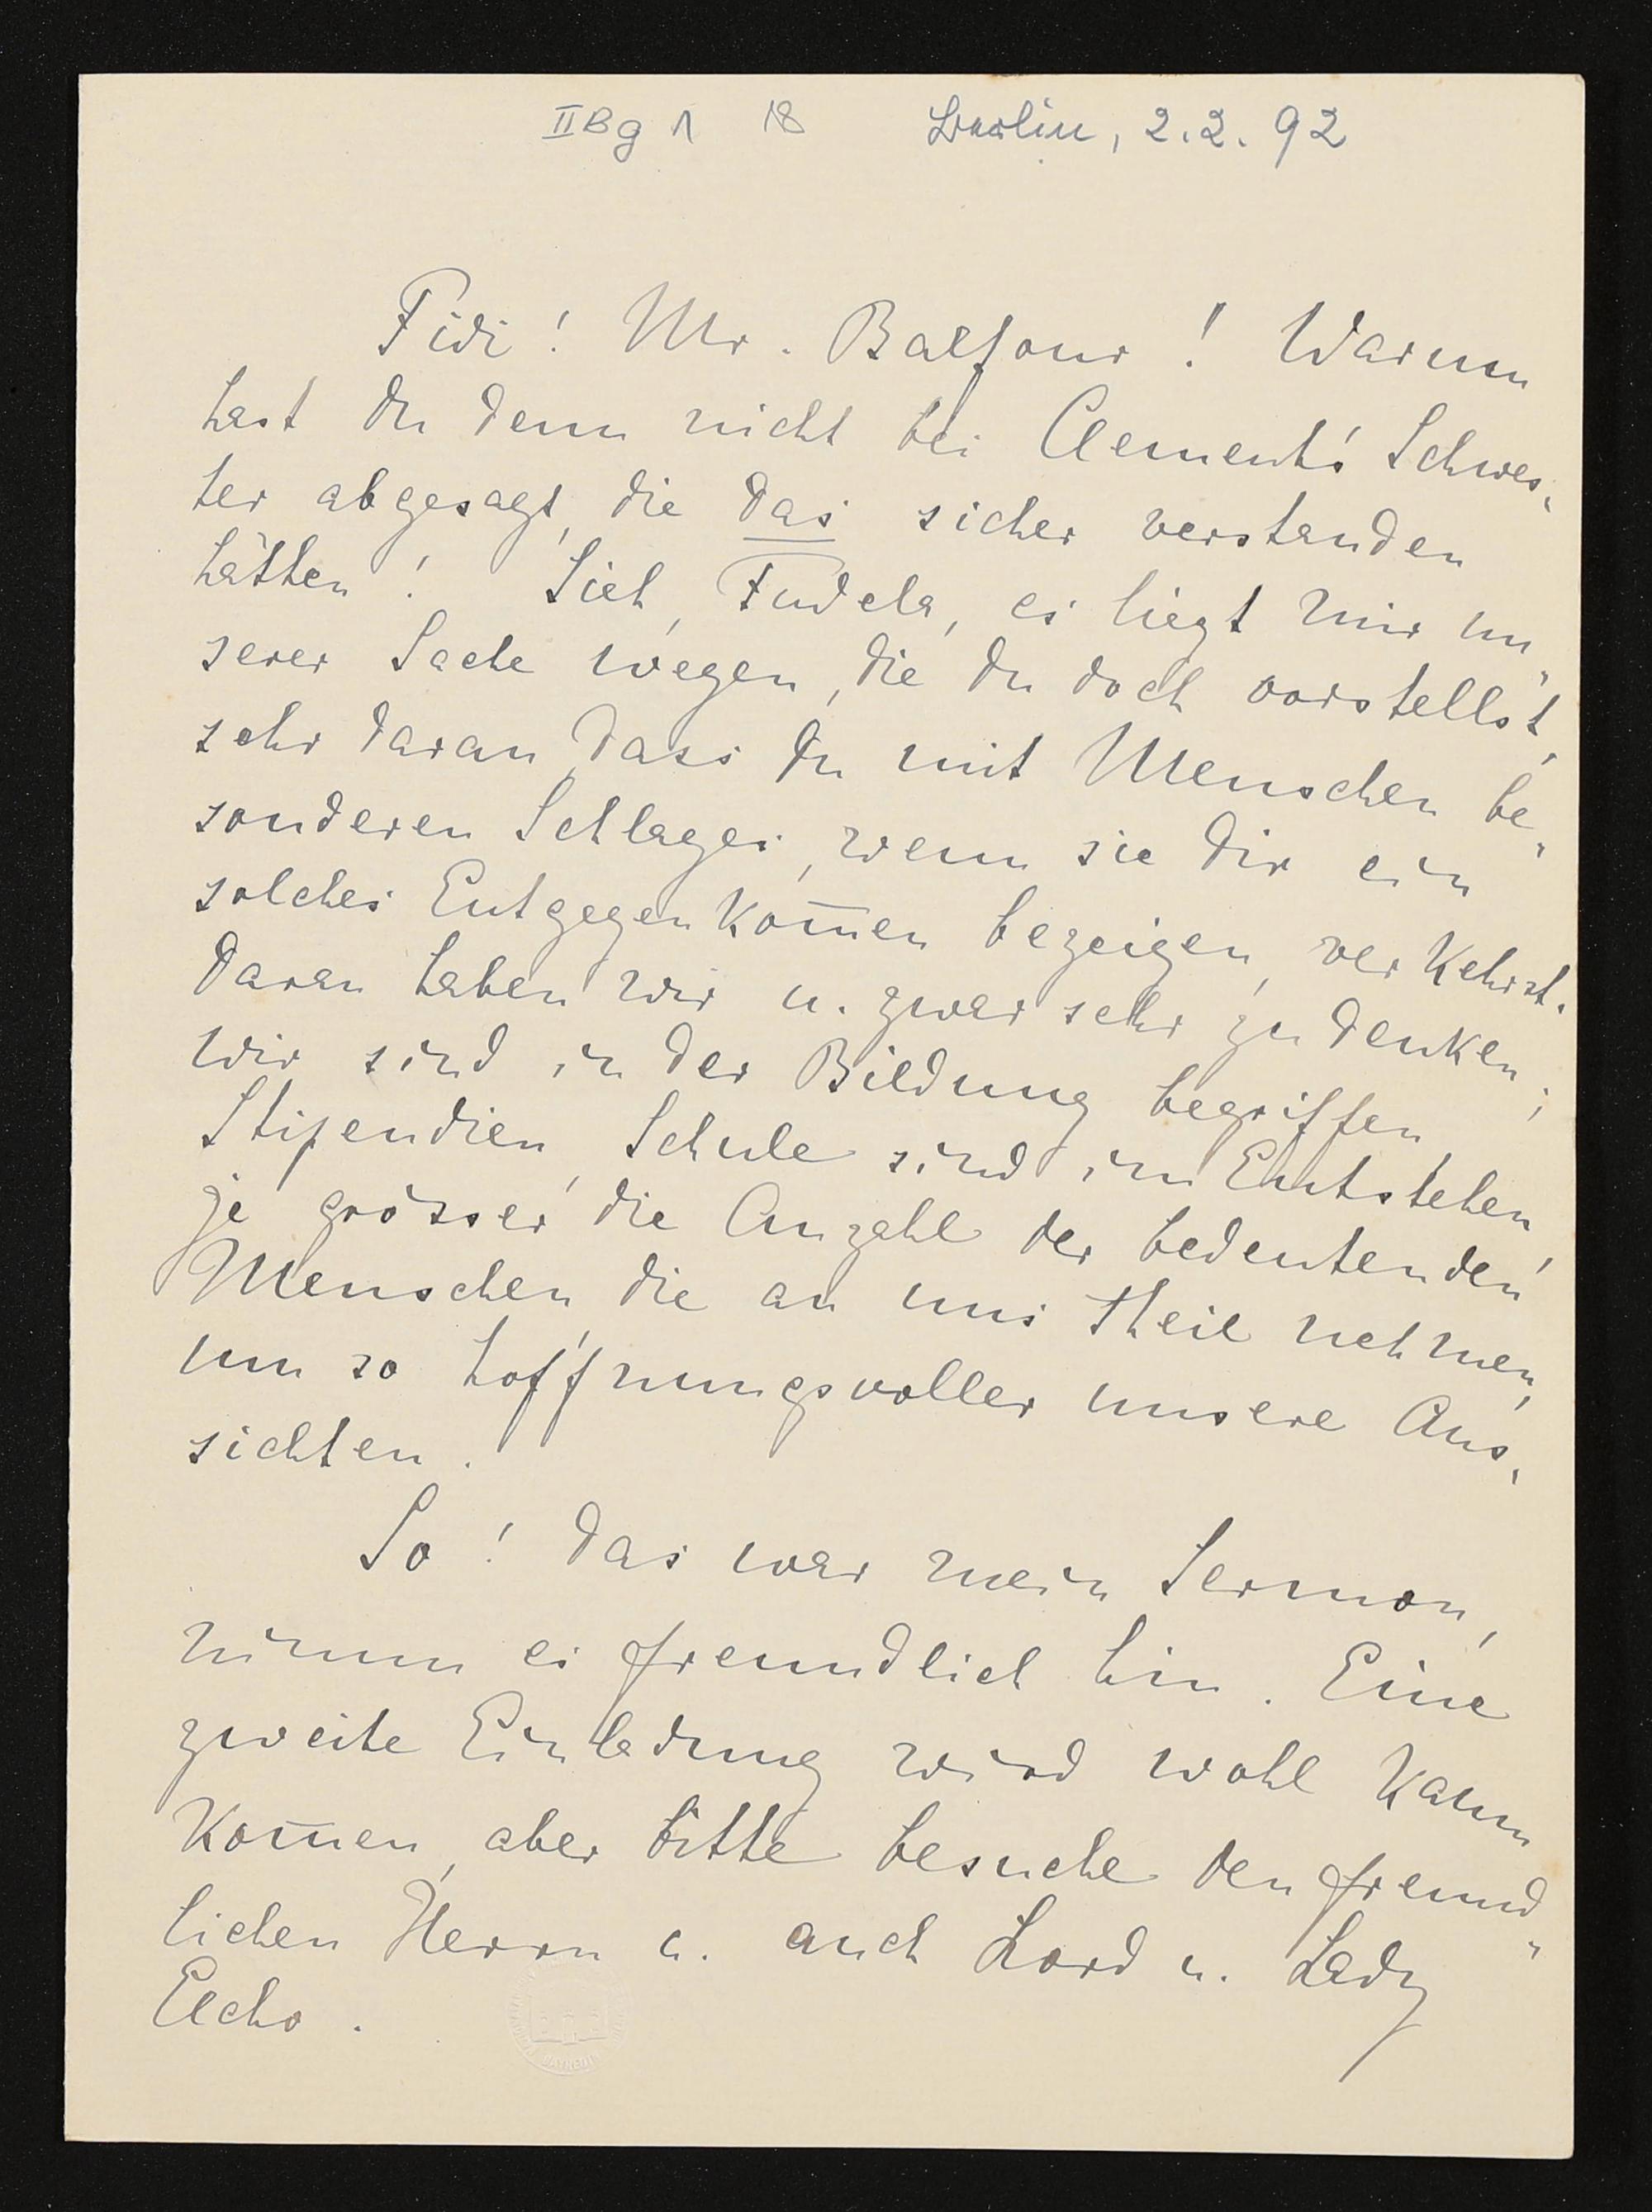 II Bg 1 18 Berlin, 2.2.92
Fidi! Mr. Balfour! Warum
hast du denn nicht bei Clement's Schwes-
ter abgesagt, die das sicher verstanden
hätten! Sieh, Fudela, es liegt mir un-
serer Sache wegen, die du doch vorstellst,
sehr daran, dass du mit Menschen be-
sonderen Schlages, wenn sie dir ein
solches Entgegenkom̅en bezeigen, verkehrst.
Daran haben wir u. zwar sehr zu denken;
wir sind in der Bildung begriffen,
Stipendien, Schule sind im Entstehen,
je grösser die Anzahl der bedeutenden
Menschen, die an uns theil nehmen,
um so hoffnungsvoller unsere Aus-
sichten.
So! das war mein Sermon,
nimm es freundlich hin. Eine
zweite Einladung wird wohl kaum
kom̅en, aber bitte besuche den freund-
lichen Herrn u. auch Lord u. Lady
Elcho.